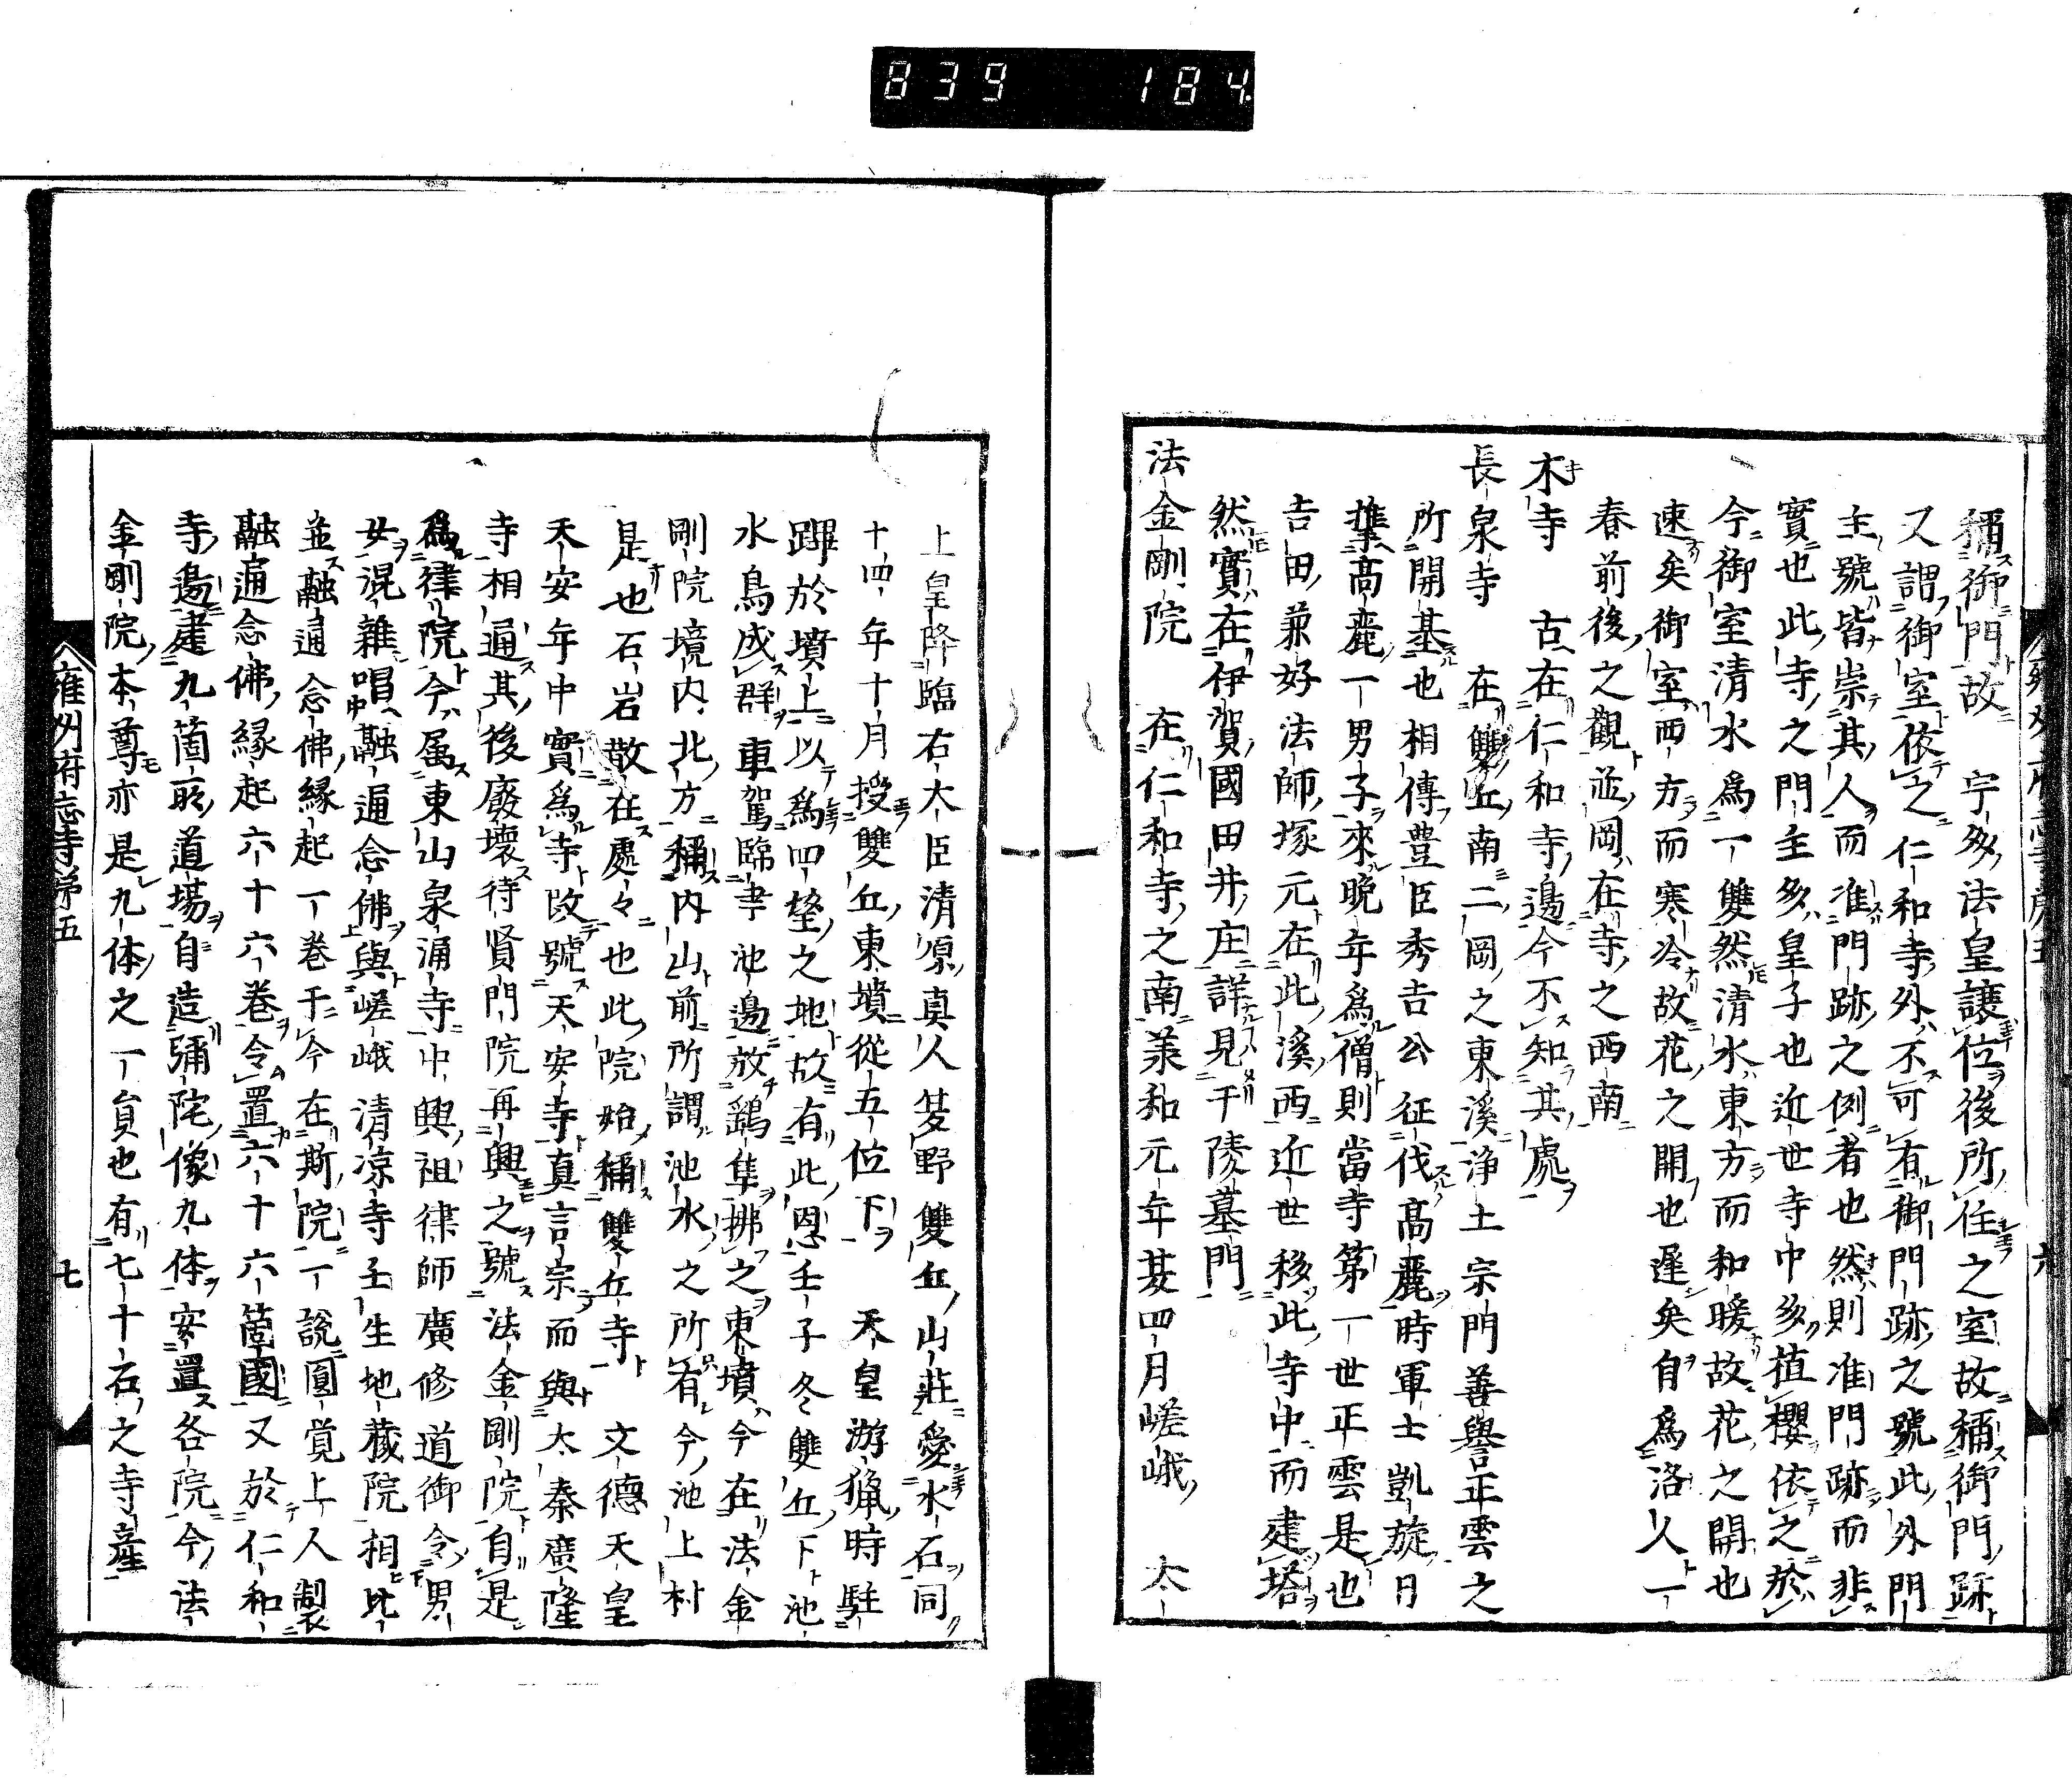 839 184
稱御門故 宇多法皇讓位後所住之室故稱御門跡
又謂御室依之仁和寺外不可有御門跡之號此外門
主號皆崇其人而准門跡之例者也然則准門跡而非
實也此寺之門主多皇子也近世寺中多植櫻依之於
今御室清水爲一雙然清水東方而和暖故花之開也
速矣御室西方而寒冷故花之開也遲矣自爲洛人一
春前後之觀並岡在寺之西南
木寺 古在仁和寺邊今不知其處
長泉寺 在雙丘南二岡之東溪淨土宗門善譽正雲之
所開基也相傳豊臣秀吉公征伐高麗時軍士凱旋日
携高麗一男子來晩年爲僧則當寺第一世正雲是也
吉田兼好法師塚元在此溪西近世移此寺中而建塔
然實在伊賀國田井庄詳見于陵墓門
法金剛院 在仁和寺之南美和元年夏四月嵯峨 太
上皇降臨右大臣清原真人夏野雙丘山莊愛水石同
十四年十月授雙丘東墳從五位下 天皇游獵時駐
蹕於墳上以爲四望之地故有此恩壬子冬雙丘下池
水鳥成群車駕臨幸池邊放鷂隼拂之東墳今在法金
剛院境内北方稱内山前所謂池水之所有今池上村
是也石岩散在處々也此院始稱雙丘寺 文德天皇
天安年中實爲寺改號天安寺真言宗而與太秦廣隆
寺相通其後廢壞待賢門院再興之號法金剛院自是
爲律院今属東山泉涌寺中興祖律師廣修道御令男
女混雜唱融通念佛與嵯峨清凉寺壬生地藏院相比
並融通念佛緣起一巻于今在斯院一說圓覚上人製
融通念佛緣起六十六巻令置六十六箇國又於仁和
寺邊建九箇所道場自造彌陀像九体安置各院今法
金剛院本尊亦是九体之一員也有七十石之寺產
雍州府志寺第五 七